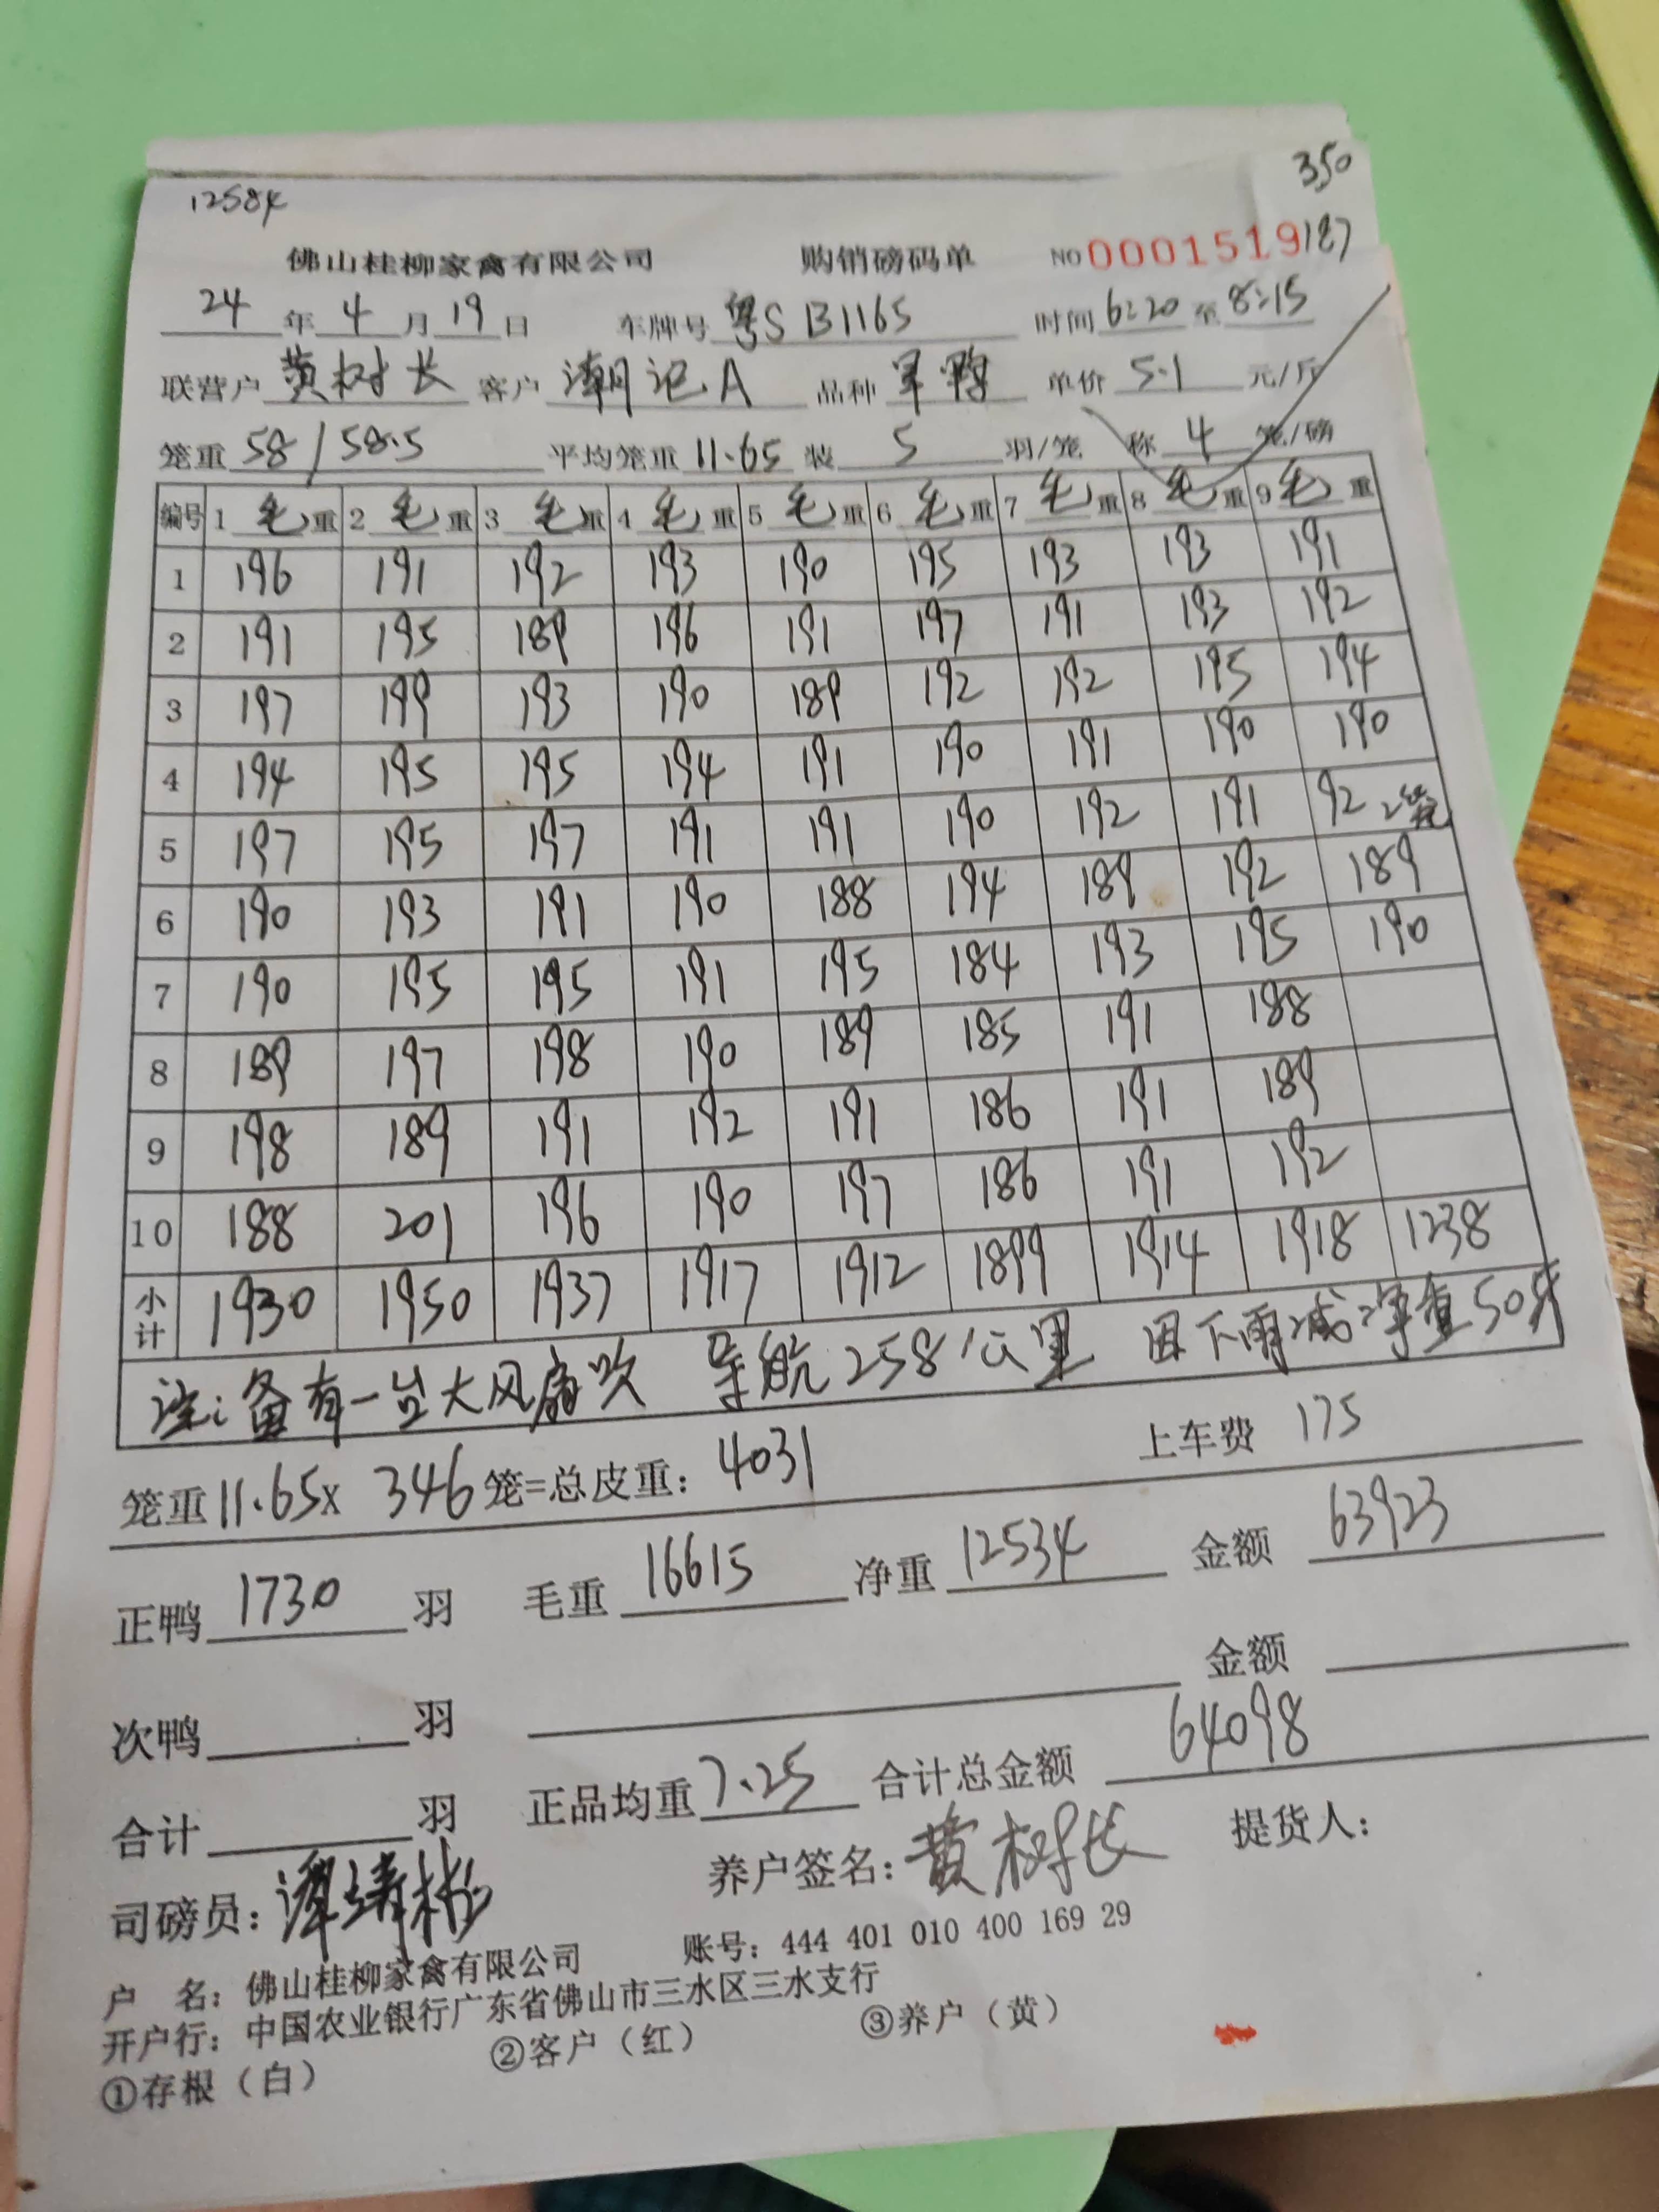 350
12584
佛山桂柳家禽有限公司 购销磅码单 NO 0001519 187
24 年 4 月 19 日 车牌号 粤S B1165 时间 6:20 至 8:15
联营户 黄树长 客户 潮记A 品种 单价 5.1 元/斤
笼重 58/58.5 平均笼重 11.65 装 5 羽/笼 称 4 笼/磅
编号 1 毛 重 2 毛 重 3 毛 重 4 毛 重 5 毛 重 6 毛 重 7 毛 重 8 毛 重 9 毛 重
1 196 191 192 193 190 195 193 193 191
2 191 195 189 196 191 197 191 193 192
3 197 199 193 190 189 192 192 195 194
4 194 195 195 194 191 190 191 190 190
5 197 195 197 191 191 190 192 191 92 2笼
6 190 193 191 190 188 194 189 192 189
7 190 195 195 191 195 184 193 195 190
8 189 197 198 190 189 185 191 188
9 198 189 191 192 191 186 191 189
10 188 201 196 190 197 186 191 192
小计 1930 1950 1937 1917 1912 1899 1914 1918 1238
注:备有一台大风扇吹 导航258公里 因下雨减净重50斤
笼重 11.65x 346 笼=总皮重: 4031 上车费 175
正鸭 1730 羽 毛重 16615 净重 12534 金额 63923
次鸭 羽 金额
合计 羽 正品均重 7.25 合计总金额 64098
司磅员: 谭靖彬 养户签名: 黄树长 提货人:
户 名: 佛山桂柳家禽有限公司 账号: 444 401 010 400 169 29
开户行: 中国农业银行广东省佛山市三水区三水支行
①存根(白) ②客户(红) ③养户(黄)